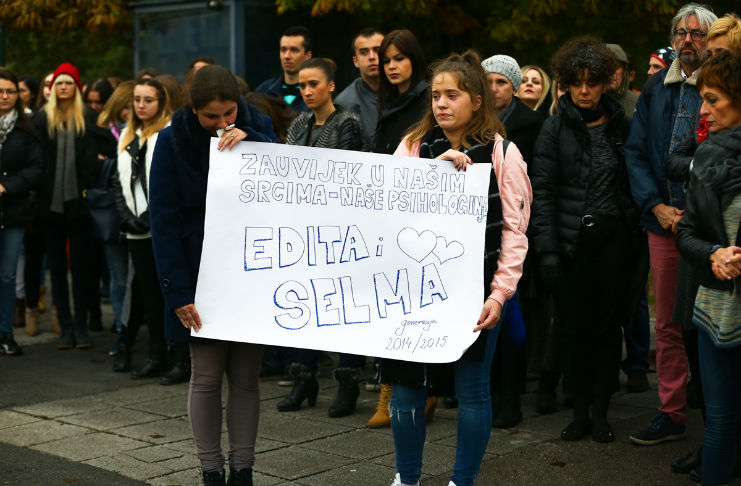 ZAUVIJEK U NAŠIM
SRCIMA-NAŠE PSIHOLOGINJE
EDITA i
SELMA
generacija
2014/2015